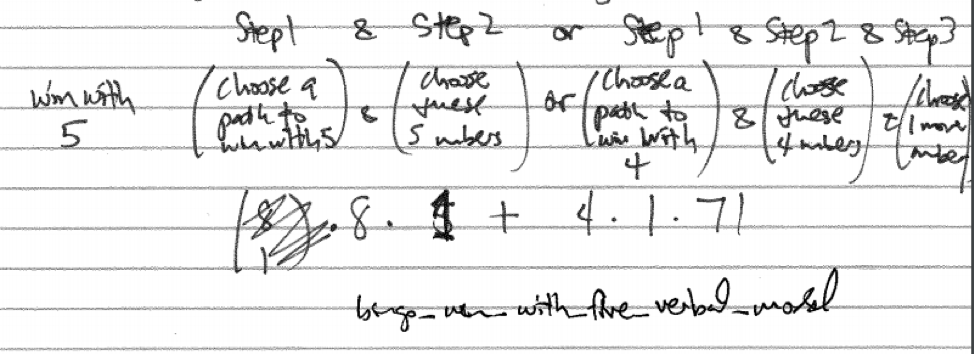 Step1 & Step2 or Step1 & Step2 & Step3
win with 5 (choose a path to win with 5) & (choose these 5 numbers) or (choose a path to win with 4) & (choose these 4 numbers) & (choose 1 more number)
8 . 1 + 4 . 1 . 71
bingo_win_with_five_verbal_model